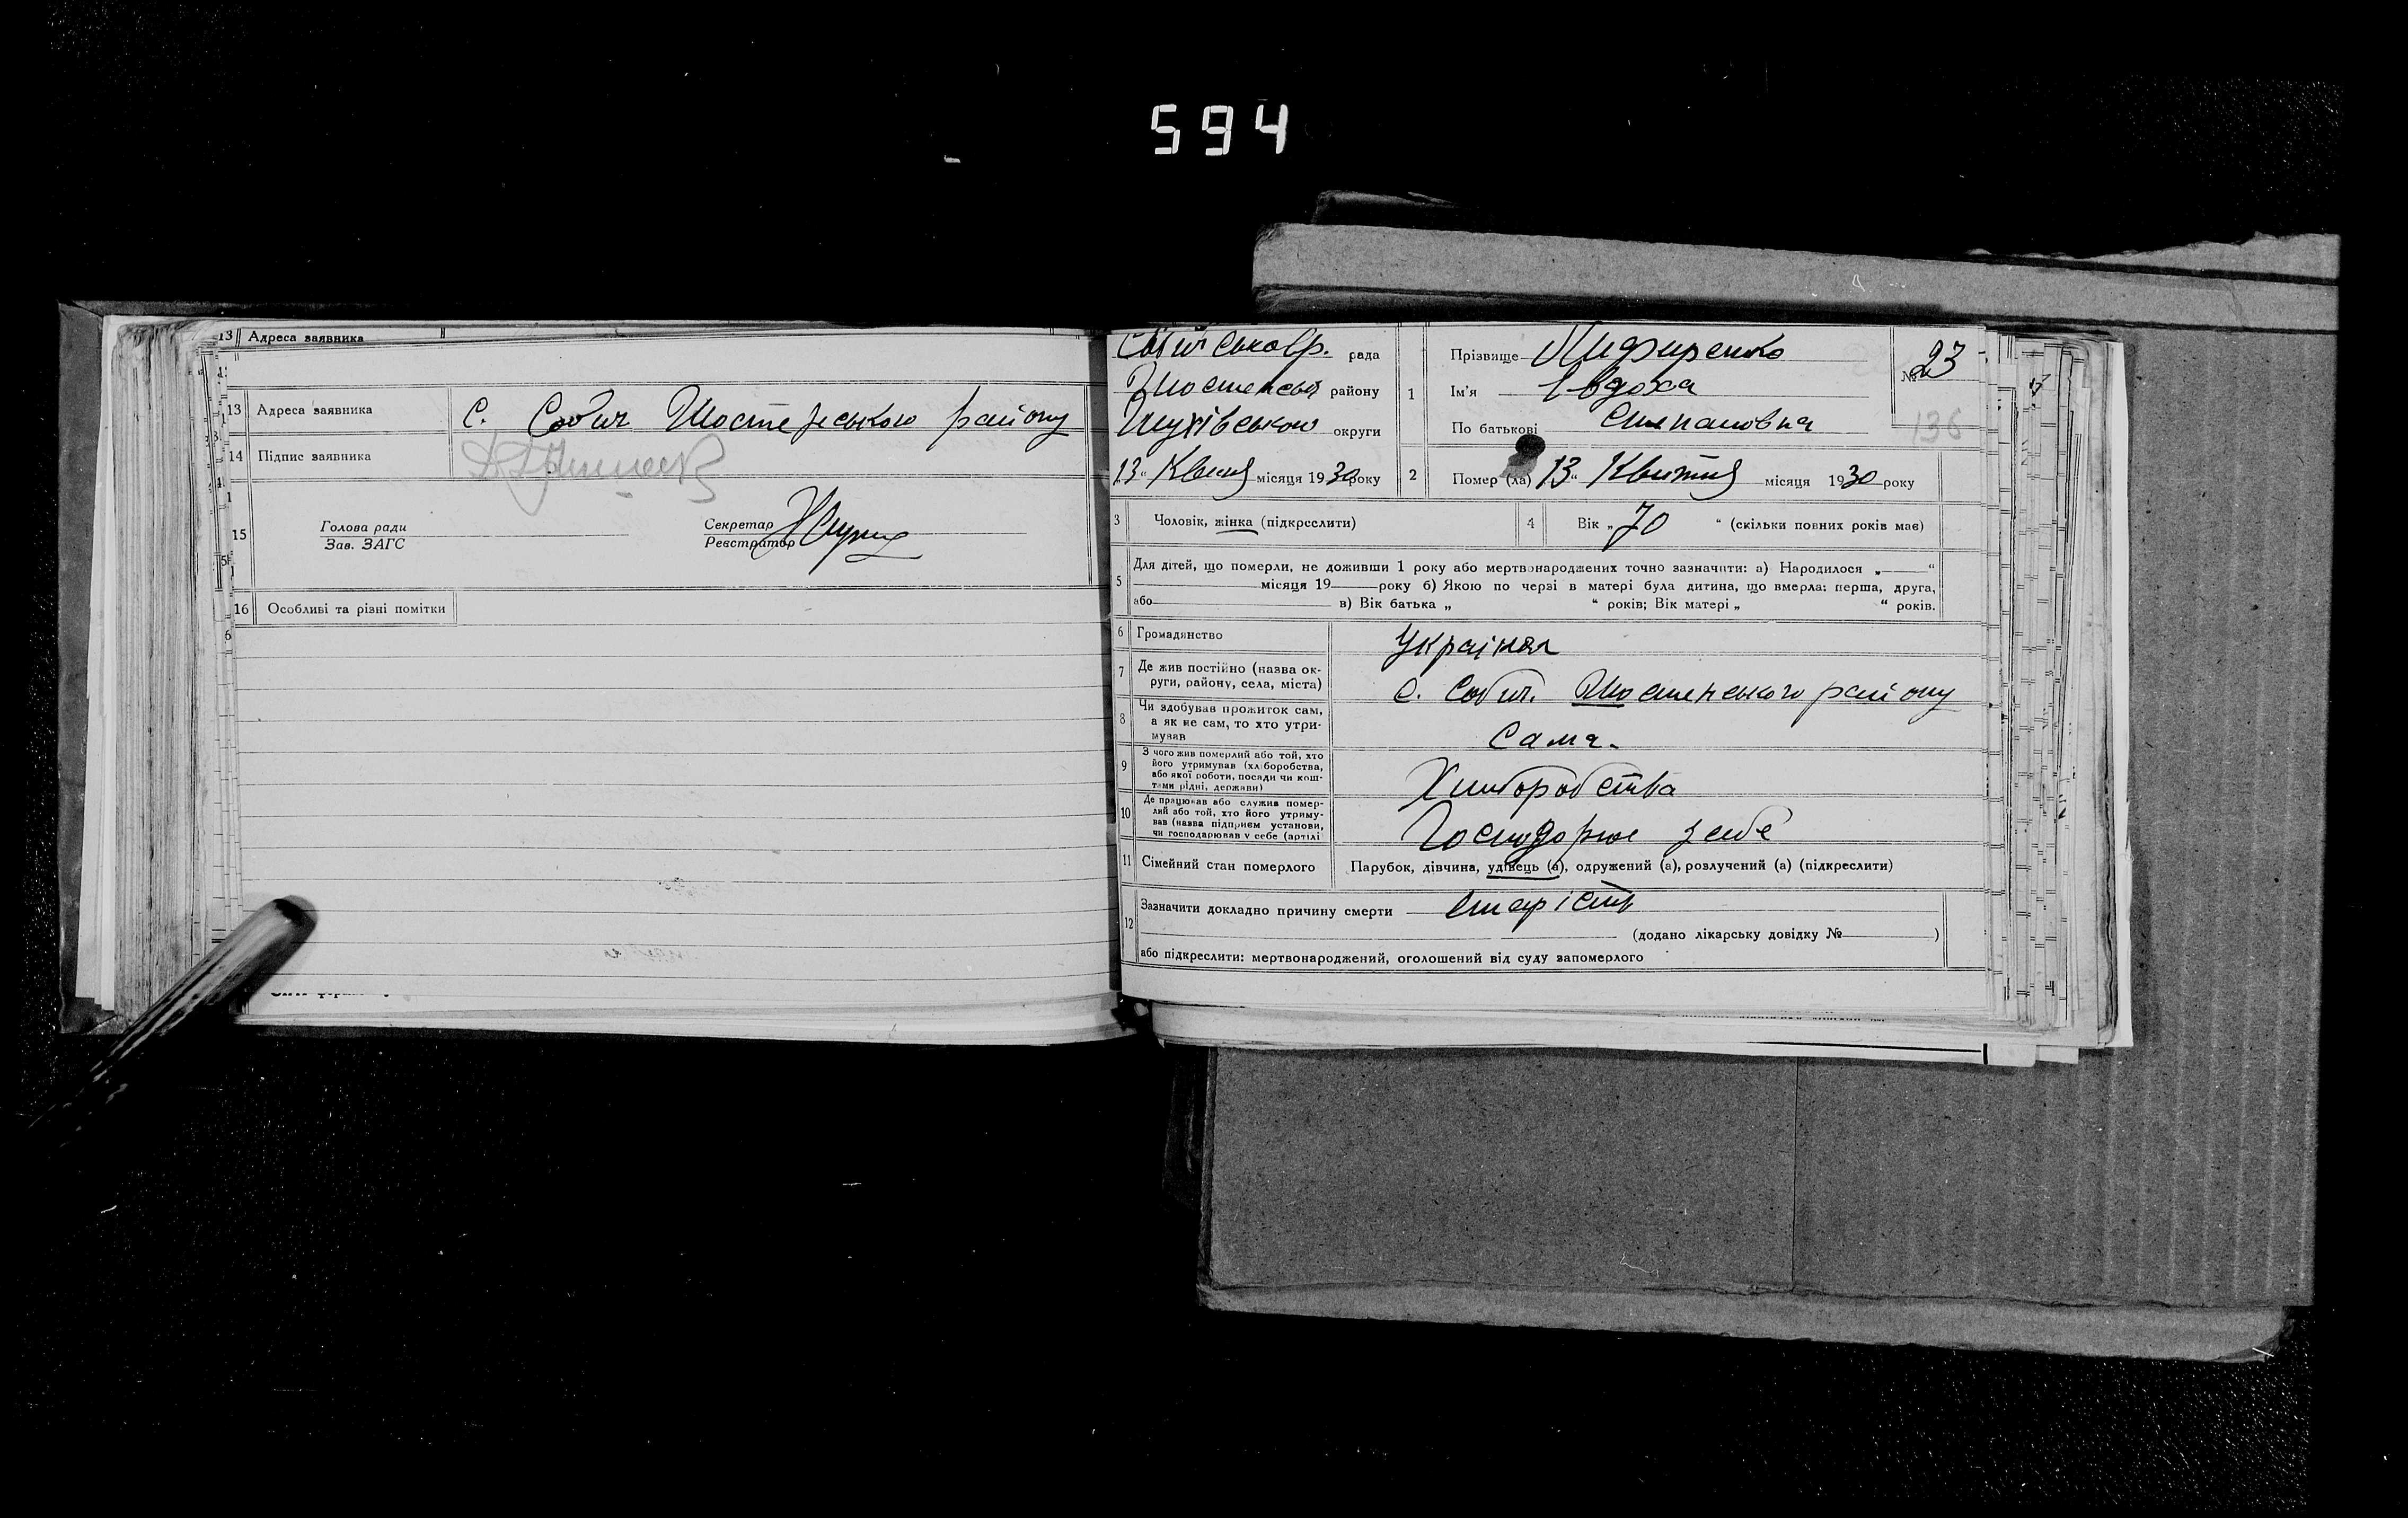 594
13 Адреса заявника
13 Адреса заявника С. Собич Шостенського району
14 Підпис заявника
15 Голова ради Секретар
Зав. ЗАГС Реєстратор
16 Особливі та різні помітки
рада Прізвище
Шостенськ району 1 Ім'я Євдоха
округи По батькові Степановна
№ 23
136
13 " Квітня місяця 1930 року 2 Помер (ла) 13 " Квітня місяця 1930 року
3 Чоловік, жінка (підкреслити) 4 Вік „ 70 “ (скільки повних років має)
5 Для дітей, що померли, не доживши 1 року або мертвонароджених точно зазначити: а) Народилося „ “
місяця 19 року б) Якою по черзі в матері була дитина, що вмерла: перша, друга,
або в) Вік батька „ “ років; Вік матері „ “ років.
6 Громадянство Україн
7 Де жив постійно (назва ок-
руги, району, села, міста) С. Собич. Шостенського району
8 Чи здобував прожиток сам,
а як не сам, то хто утри-
мував Сама.
9 З чого жив померлий або той, хто
його утримував (хліборобства,
або якої роботи, посади чи кош-
тами рідні, держави) Хліборобства
10 Де працював або служив помер-
лий або той, хто його утриму-
вав (назва підприєм установи,
чи господарював у себе (артілі
11 Сімейний стан померлого Парубок, дівчина, удівець (а), одружений (а), розлучений (а) (підкреслити)
12 Зазначити докладно причину смерти старість
(додано лікарську довідку № )
або підкреслити: мертвонароджений, оголошений від суду запомерлого